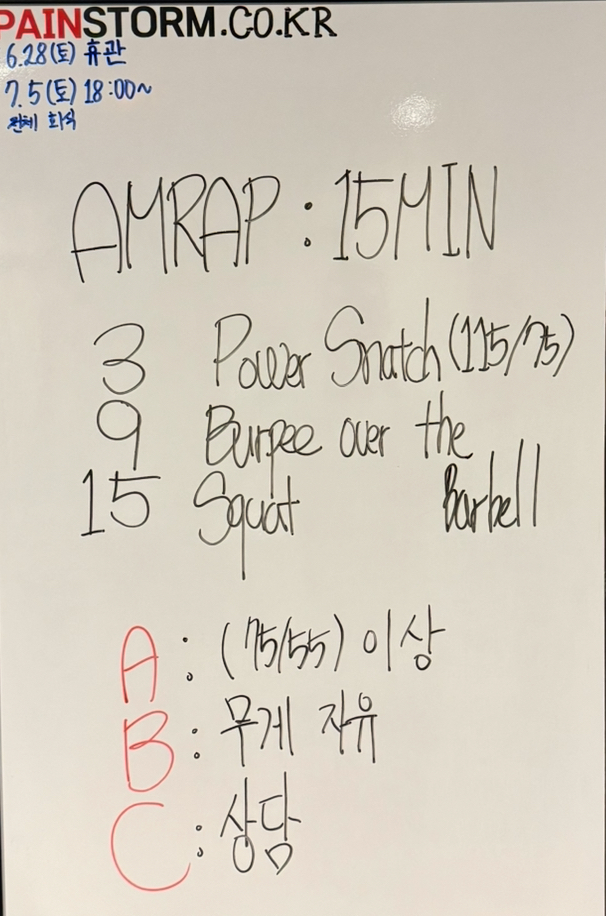 PAINSTORM.CO.KR
6.28(토) 휴관
7.5(토) 18:00~
전체 회식
AMRAP : 15MIN
3 Power Snatch (115/75)
9 Burpee over the
Barbell
15 Squat
A : (75/55) 이상
B : 무게 자유
C : 상담